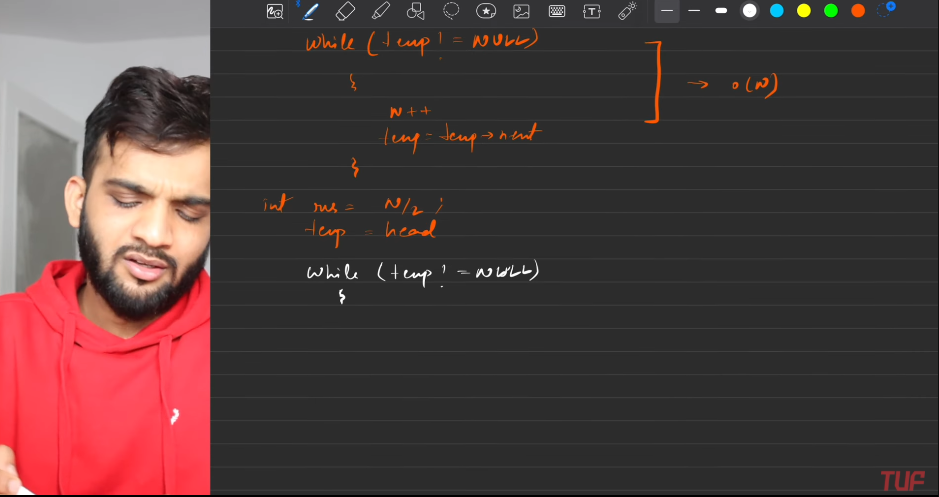 while (temp != NULL)
{
→ O(N)
N++
temp = temp → next
}
int res = N/2 ;
temp = head
while (temp != NULL)
{
TUF